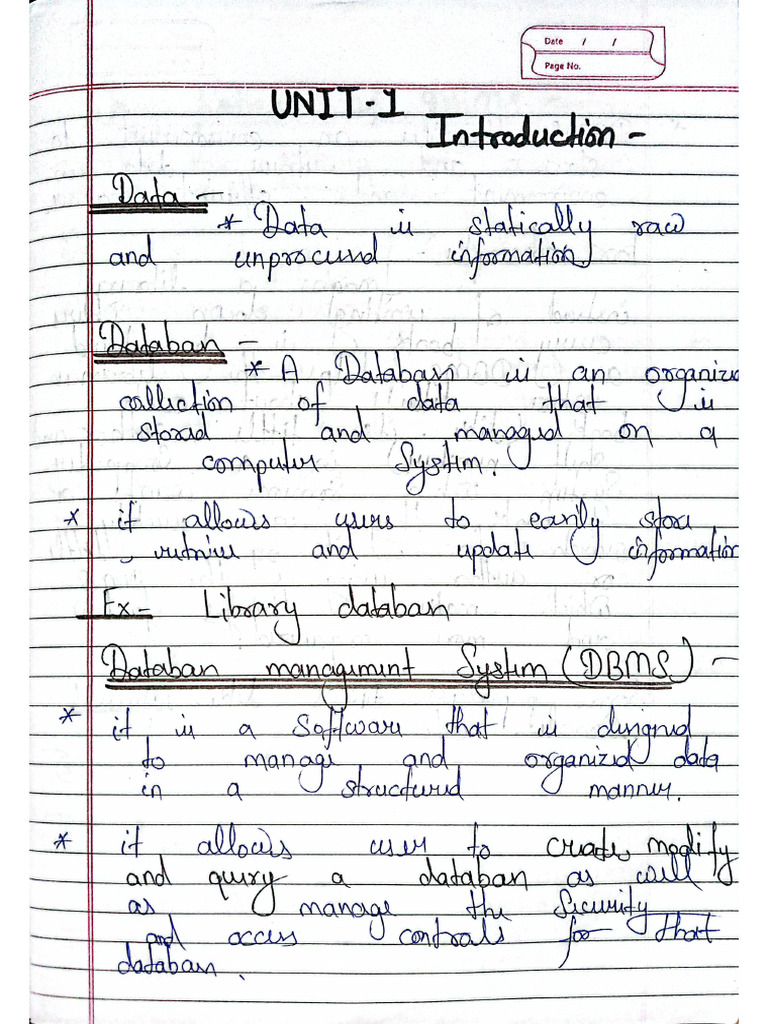 Date / /
Page No.
UNIT-1
Introduction -
Data -
* Data is statically raw
and unprocessed information
Database -
* A Database is an organized
collection of data that is
stored and managed on a
computer System.
* it allows users to easily store
, retrieve and update information
Ex- Library database
Database management System (DBMS) -
* it is a Software that is designed
to manage and organized data
in a structured manner.
* it allows user to create, modify
and query a database as well
as manage the Security
and access controls for that
database.